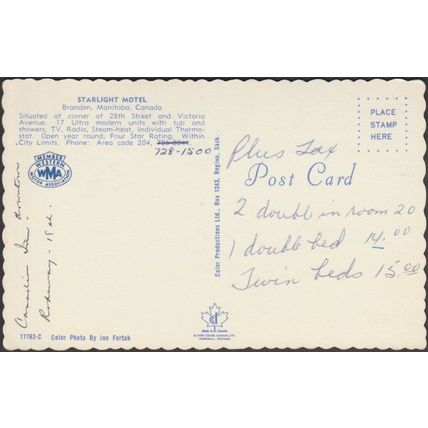 STARLIGHT MOTEL
Brandon, Manitoba, Canada
Situated at corner of 28th Street and Victoria
Avenue. 17 Ultra modern units with tub and
showers, TV, Radio, Steam-heat, individual Thermo-
stat. Open year round, Four Star Rating. Within
City Limits. Phone: Area code 204,
728-1500
MEMBER
WESTERN
WMA
MOTOR ASSOCIATION
Canadian Inn - downtown
18th
17762-C Color Photo By Joe Fartak
Color Productions Ltd., Box 1243, Regina, Sask.
PLACE
STAMP
HERE
Plus Tax
Post Card
2 double in room 20
1 double bed 14.00
Twin beds 15.00
Made in Canada